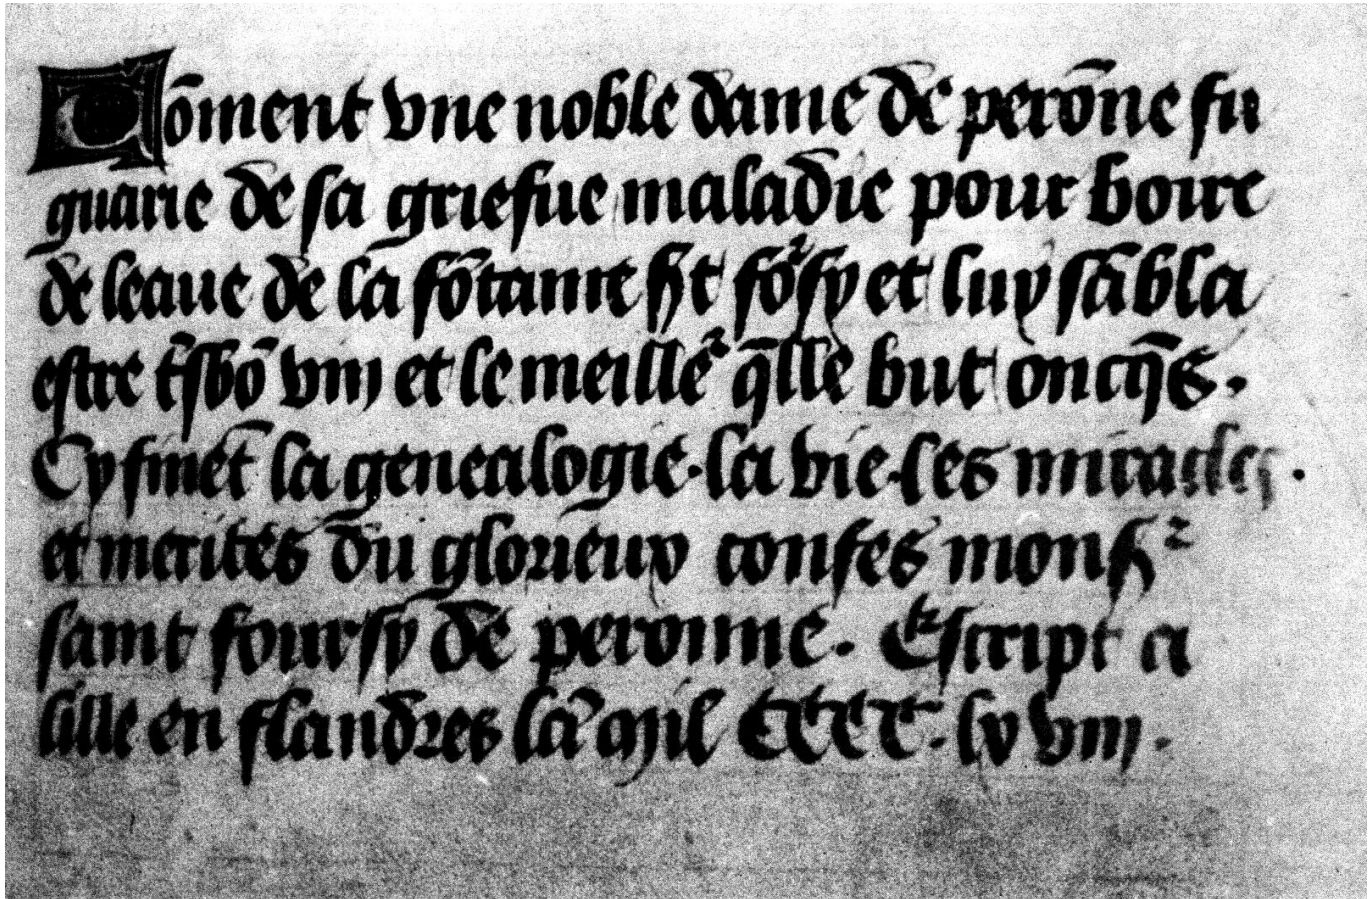 Cõment vne noble dame de perõne fu
guarie de sa griefue maladie pour boire
de leaue de la fõtaine st fo͛sy et luy sãbla
estre t̃sbõ vin et le meille͛ q̃lle but oncq̃s.
Cy finẽt la genealogie. la vie. les miracles.
et merites du glorieuy confes mons͛
saint foursy de peronne. Escript a
lille en flandres lã mil CCCC. lv viij.